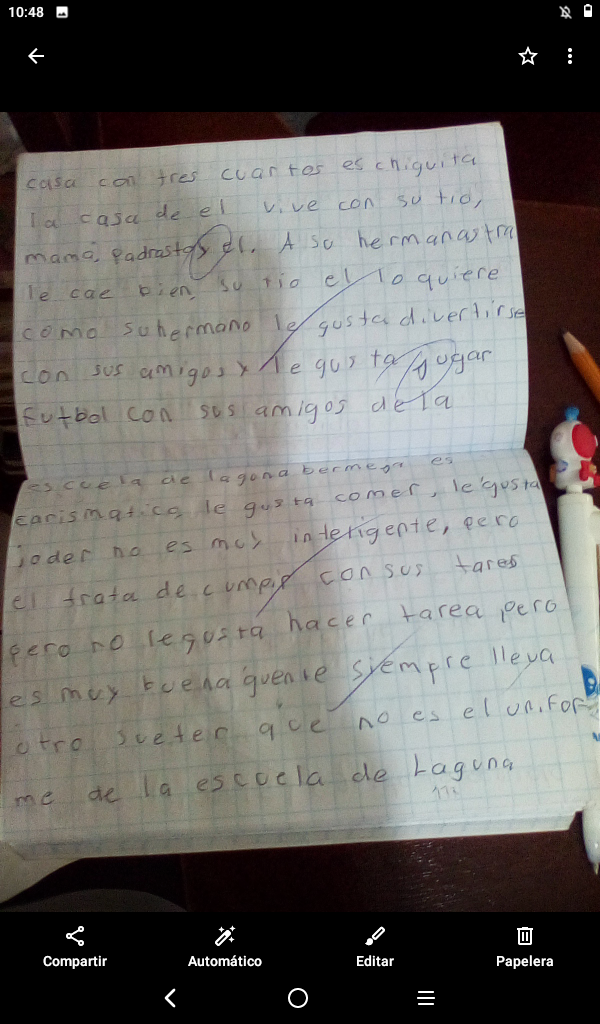 10:48
casa con tres cuartos es chiguita
la casa de el vive con su tio,
mamá, padrasto y el. A su hermanastra
le cae bien, su tio el lo quiere
como suhermano le gusta divertirse
con sus amigos y le gusta jugar
futbol con sus amigos de la
escuela de laguna bermeja es
carismatico le gusta comer, le gusta
joder no es muy inteligente, pero
el trata de cumplir con sus tares
pero no legusta hacer tarea pero
es muy buena guente siempre lleva
otro sueter que no es el unifor
me de la escuela de Laguna
Compartir
Automático
Editar
Papelera